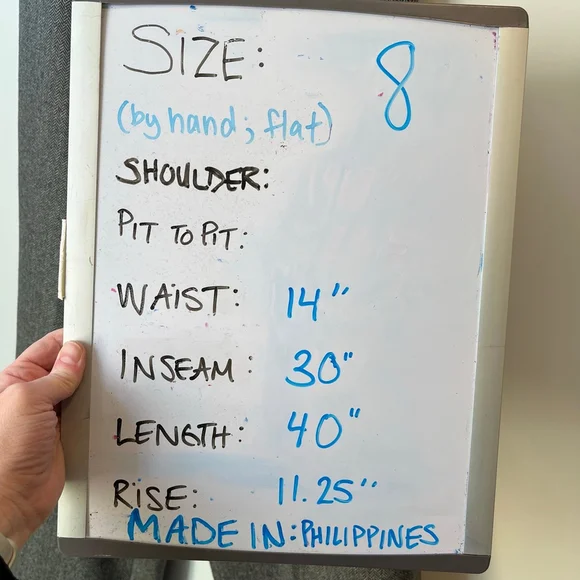 SIZE: 8
(by hand; flat)
SHOULDER:
PIT TO PIT:
WAIST: 14"
INSEAM: 30"
LENGTH: 40"
RISE: 11.25"
MADE IN: PHILIPPINES